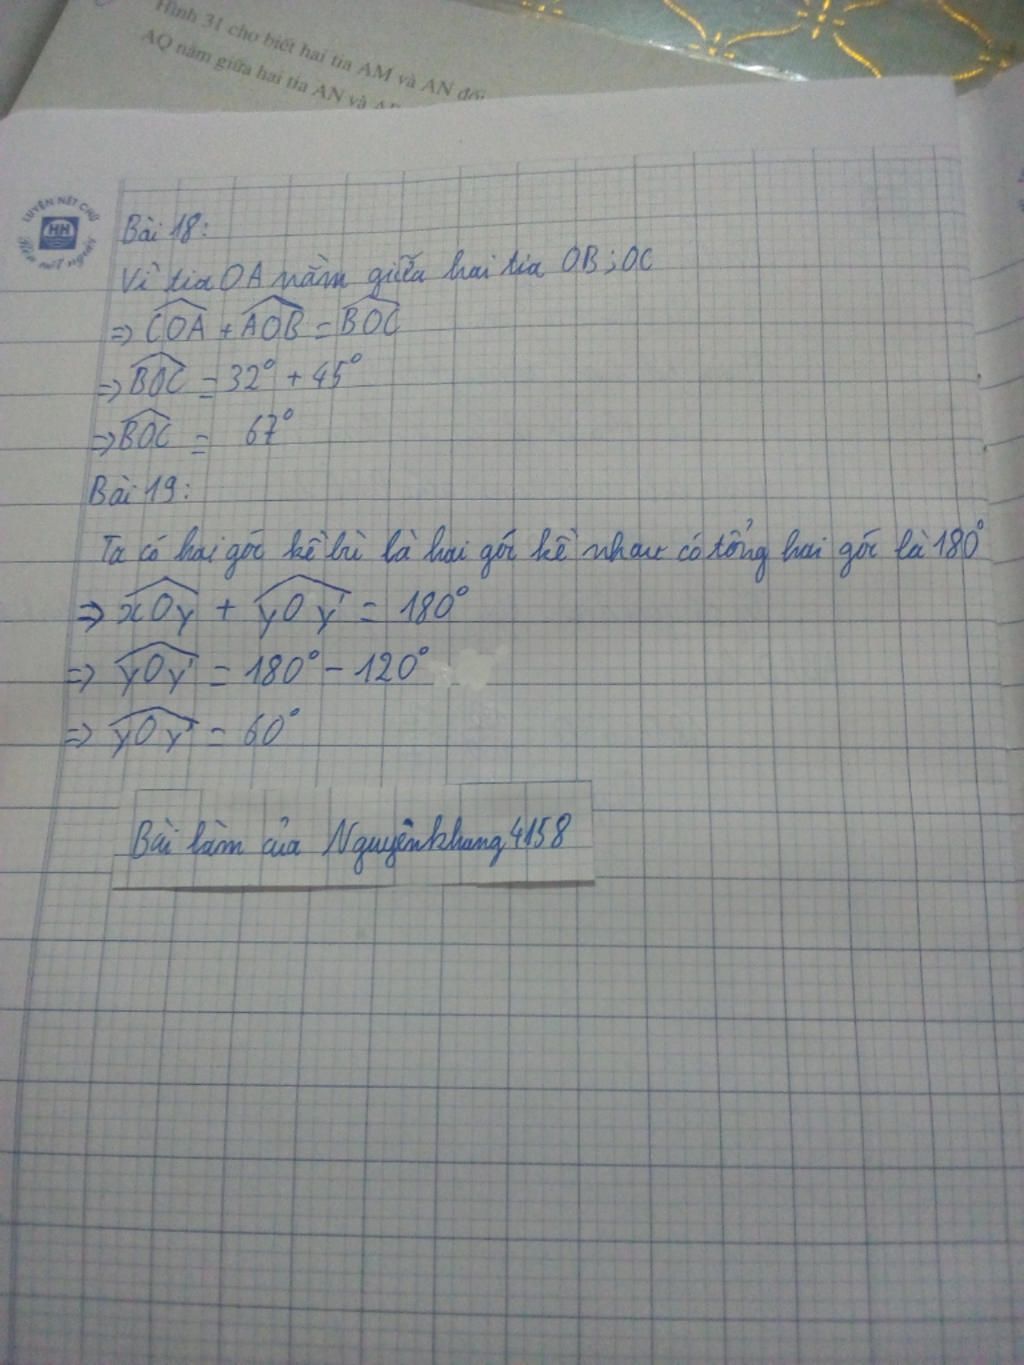 Hình 31 cho biết hai tia AM và AN đối
AQ nằm giữa hai tia AN và
LUYỆN NÉT CHỮ
HH
Rèn nết người
Bài 18:
Vì tia OA nằm giữa hai tia OB; OC
=> COA + AOB = BOC
=> BOC = 32° + 45°
=> BOC = 67°
Bài 19:
Ta có hai góc kề bù là hai góc kề nhau có tổng hai góc là 180°
=> xOy + yOy' = 180°
=> yOy' = 180° - 120°
=> yOy' = 60°
Bài làm của Nguyênkhang4158